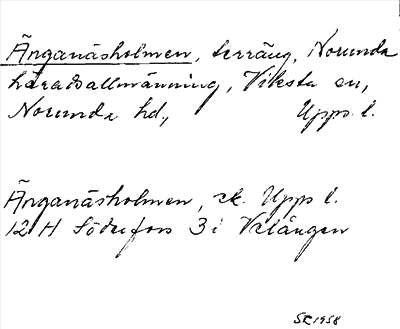 Änganäsholmen, terräng, Norunda
häradsallmänning, Viksta sn,
Norunda hd, Upps. l.
Änganäsholmen, ek. Upps l.
12 H Söderfors 3 i Vetängen
SR 1958